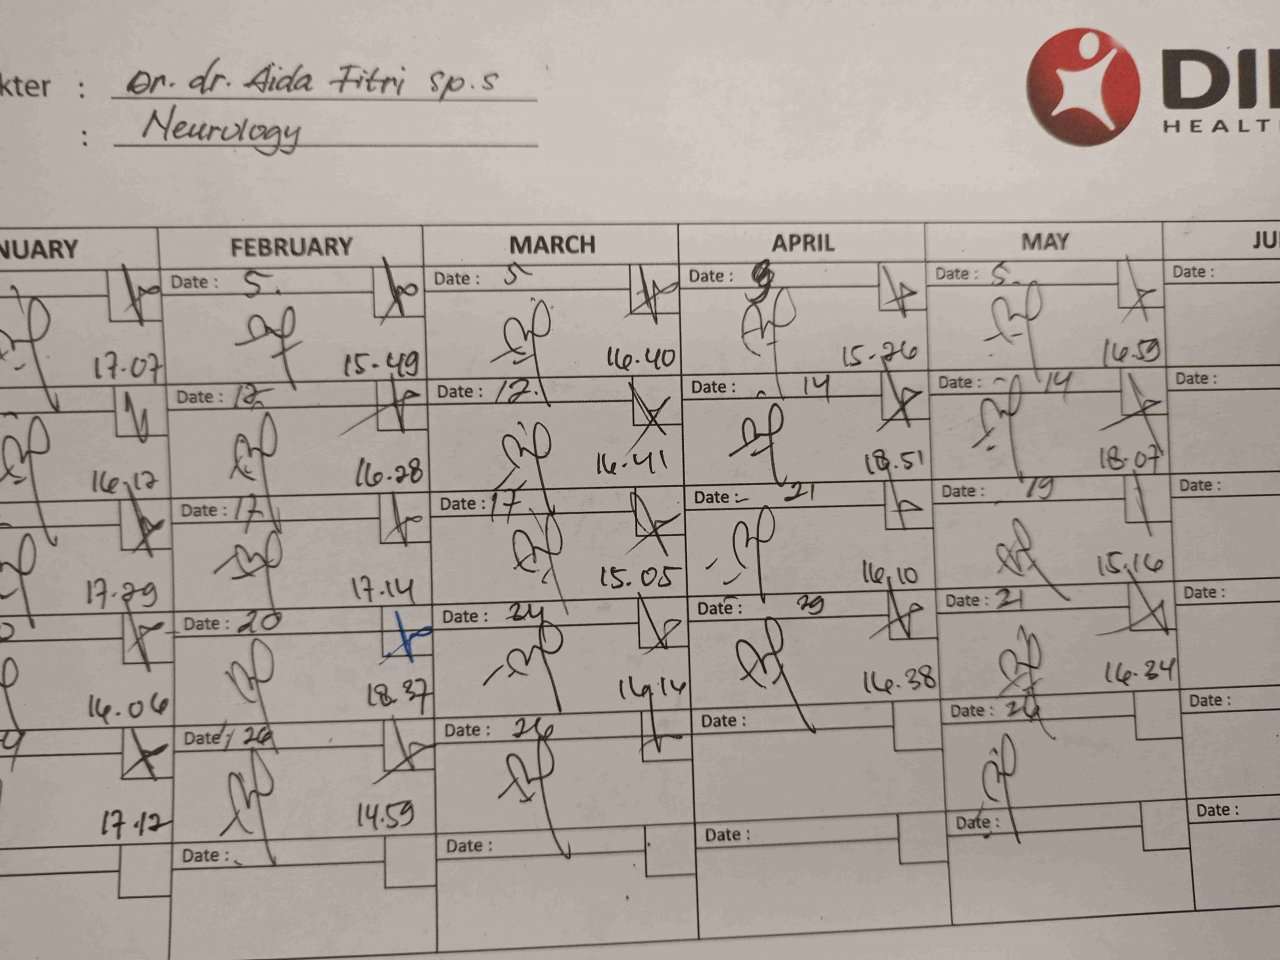 kter : Dr. dr. Aida Fitri Sp.S
: Neurology
DI
HEALT
NUARY FEBRUARY MARCH APRIL MAY JU
Date : 5. Date : 5 Date : 9 Date : 5. Date :
17.07 15.49 16.40 15.26 16.59
Date : 12 Date : 12. Date : 14 Date : 14 Date :
16,12 16.28 16.41 18.51 18.07
Date : 17 Date : 17 Date : 21 Date : 19 Date :
17.29 17.14 15.05 16,10 15,16
Date : 20 Date : 24 Date : 29 Date : 21 Date :
16.06 18.37 16,14 16.38 16.34
Date : 26 Date : 26 Date : Date : 26 Date :
17.12 14.59
Date : Date : Date : Date : Date :